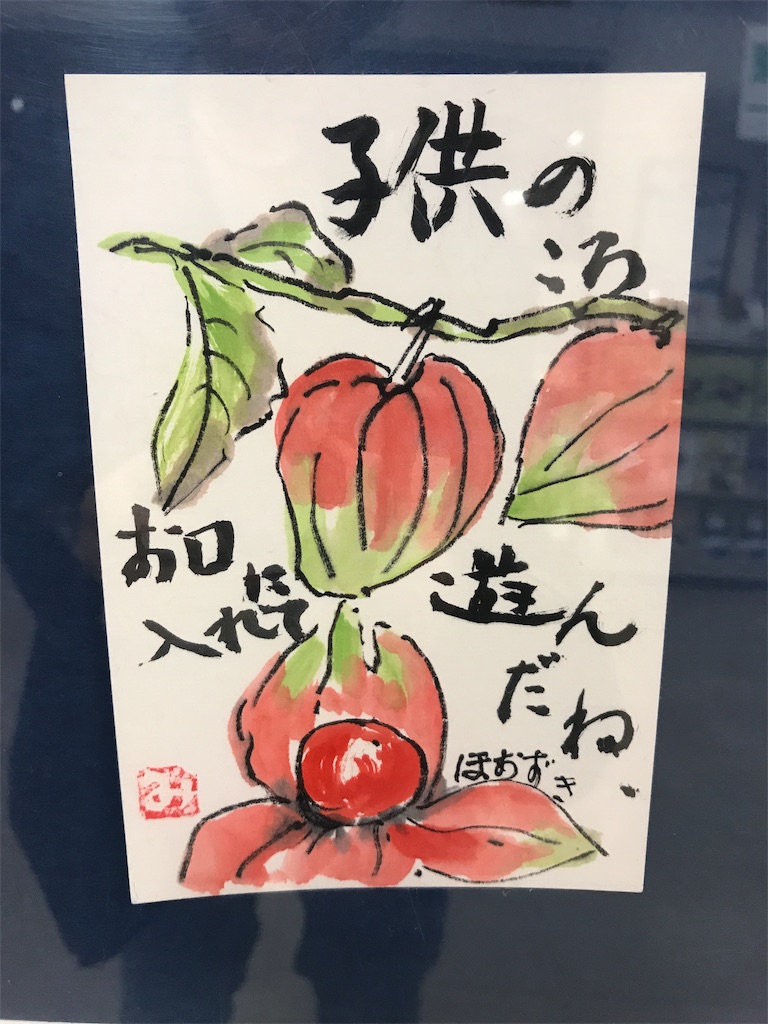 子供の
ころ
お口に
入れて
遊ん
だね、
ほおずき
み